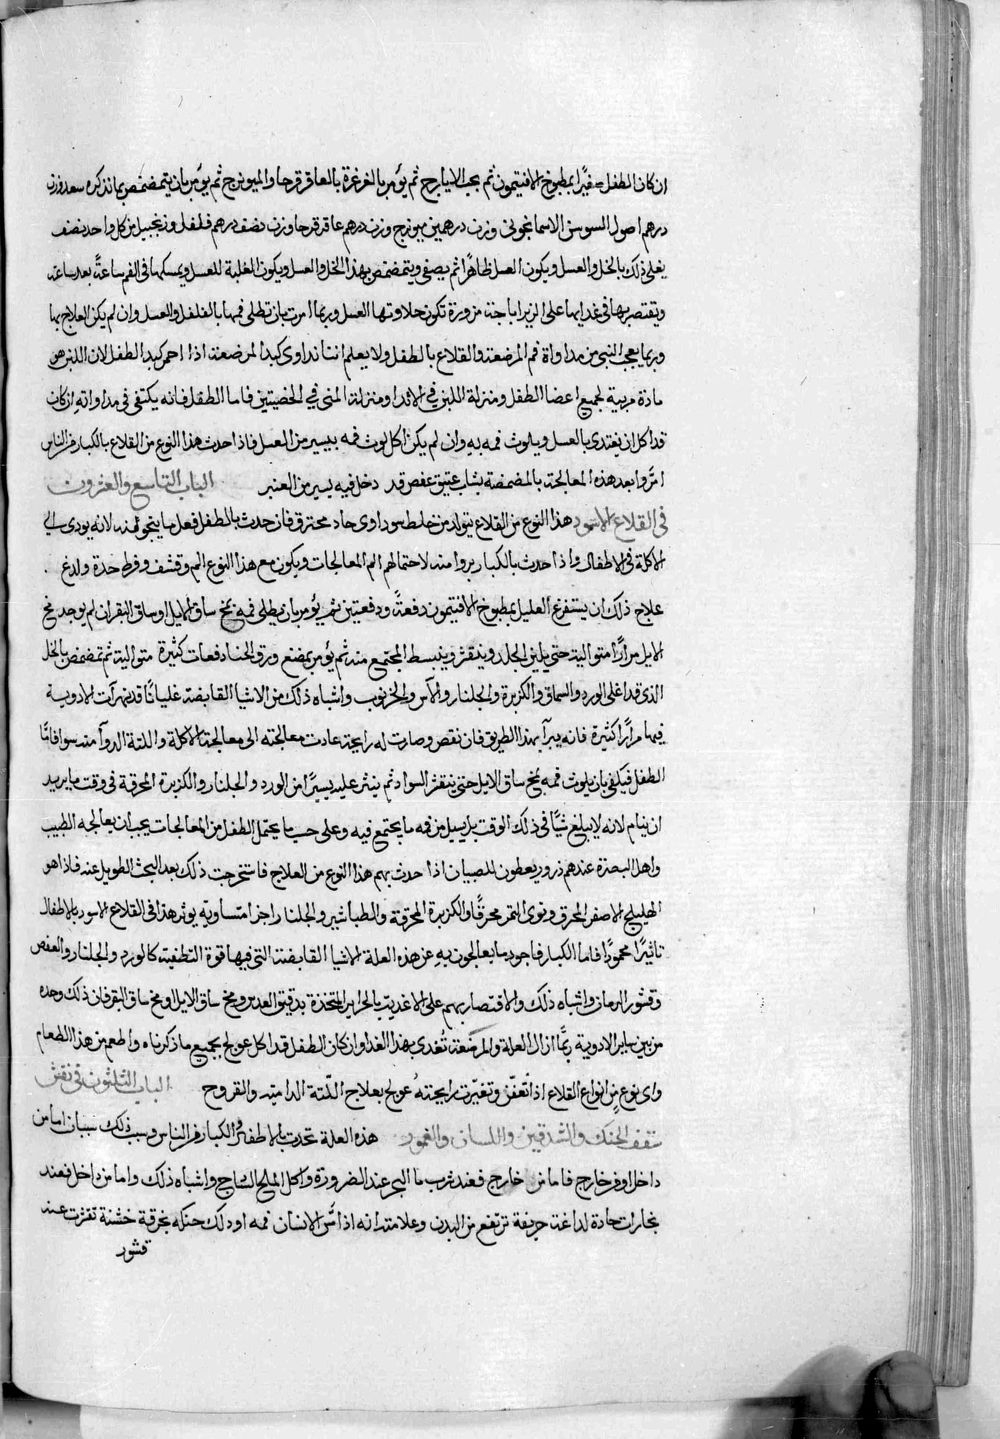 ان كان الطفل صغيرًا بمطبوخ الافتيمون ثم بحب الايارج ثم يؤمر بالغرغرة بالعاقرقرحا والميويزج ثم يؤمر بان يتمضمض بما نذكره سعد وزن
درهم اصول السوسن الاسمانجونى وزن درهمين ميويزج وزن درهم عاقرقرحا وزن نصف درهم فلفل وزنجبيل من كل واحد نصف
يغلى ذلك بالخل والعسل ويكون العسل ظاهرًا ثم يصفى ويتمضمض بهذا الخل والعسل ويكون الغلبة للعسل ويمسكها فى الفم ساعةً بعد ساعة
ويقتصر بها فى غذايها على الزيرباجة مزورة تكون حلاوتها العسل وربما امرت بان تطلى فمها بالفلفل والعسل وان لم يكن العلاج بها
وربما يعجب من مداواة فم المرضعة والقلاع بالطفل ولا يعلم اننا نداوى كبد المرضعة اذا احمر كبد الطفل لان اللبن هو
مادة مربية لجميع اعضا الطفل ومنزلة اللبن فى الاثدا ومنزلة المنى فى الخصيتين فاما الطفل فانه يكتفى فى مداواته ان كان
قد اكل ان يغتدى بالعسل ويلوث فمه به وان لم يكن اكل لوث فمه بيسير من العسل فاذا حدث هذا النوع من القلاع بالكبار من الناس
امروا بعد هذه المعالجة بالمضمضة بشراب عتيق عفص قد دخل فيه يسير من العنبر الباب التاسع والعشرون
فى القلاع الاسود هذا النوع من القلاع يتولد من خلط سوداوى حاد محترق فان حدث بالطفل فعل ما ينجو منه لانه يودى الى
الاكلة فى الاطفال واذا حدث بالكبار بروا منه لاحتمالهم الم المعالجات ويكون مع هذا النوع الم وقشف وفرط حدة ولدغ
علاج ذلك ان يستفرغ العليل بمطبوخ الافتيمون دفعةً ودفعتين ثم يؤمر بان يطلى فمه بمخ ساق الايل او ساق البقر ان لم يوجد مخ
الايل مرارًا متوالية حتى يلين الجلد وينقشر وينبسط المجتمع منه ثم يؤمر بمضغ ورق الحنا دفعات كثيرة متوالية ثم تمضمض بالخل
الذى قد اغلى الورد والسماق والكزبرة والجلنار والآس والخرنوب واشباه ذلك من الاشيا القابضة غليانًا قد تهرأت الادوية
فيها مرارًا كثيرة فانه يبرأ بهذا الطريق فان نقص وصارت له رايحة عادت معالجته الى معالجة الاكلة واللثة الدوآ منه سوا فامّا
الطفل فيكفى بان يلوث فمه بمخ ساق الايل حتى ينقشر السواد ثم ينثر عليه يسيرًا من الورد والجلنار والكزبرة المحرقة فى وقت ما يريد
ان ينام لانه لا يبلغ شيًّا فى ذلك الوقت بل يسيل من فمه ما يجتمع فيه وعلى حسب ما يحتمل الطفل من المعالجات يجب ان يعالجه الطبيب
واهل البصرة عندهم ذرور يعطون للصبيان اذا حدث بهم هذا النوع من العلاج فاستخرجت ذلك بعد البحث الطويل عنه فاذا هو
الهليلج الاصفر المحرق ونوى التمر محرقًا والكزبرة المحرقة والطباشير والجلنار اجزا متساوية يوثر هذا فى القلاع الاسود بالاطفال
تاثيرًا محمودًا فاما الكبار فاجود ما يعالجون به عن هذه العلة الاشيا القابضة التى فيها قوة التطفية كالورد والجلنار والعفص
وقشور الرمان واشباه ذلك والاقتصار بهم على الاغدية بالحراير المتخذة بدقيق العدس ومخ ساق الايل او مخ ساق البقر فان ذلك وحده
من بين ساير الادوية ربّما ازال العلة والمرضعة تُغدى بهذا الغدا وان كان الطفل قد اكل عولج بجميع ما ذكرناه واطعم من هذا الطعام
واى نوع من انواع القلاع اذا تعفن وتغيّرت رايحته عولج بعلاج اللّثة الدامية والقروح الباب الثلثون فى تقشر
سقف الحنك والشدقين واللسان والعمور هذه العلة تحدث بالاطفال والكبار من الناس وسبب ذلك سببان اما من
داخل او من خارج فاما من خارج فعند شرب ما البحر عند الضرورة واكل الملح الساج واشباه ذلك واما من داخل فعند
بخارات حادة لداغة حريفة ترتفع من البدن وعلامته انه اذا مسّ الانسان فمه او دلك حنكه بخرقة خشنة تقشرت عنه
قشور